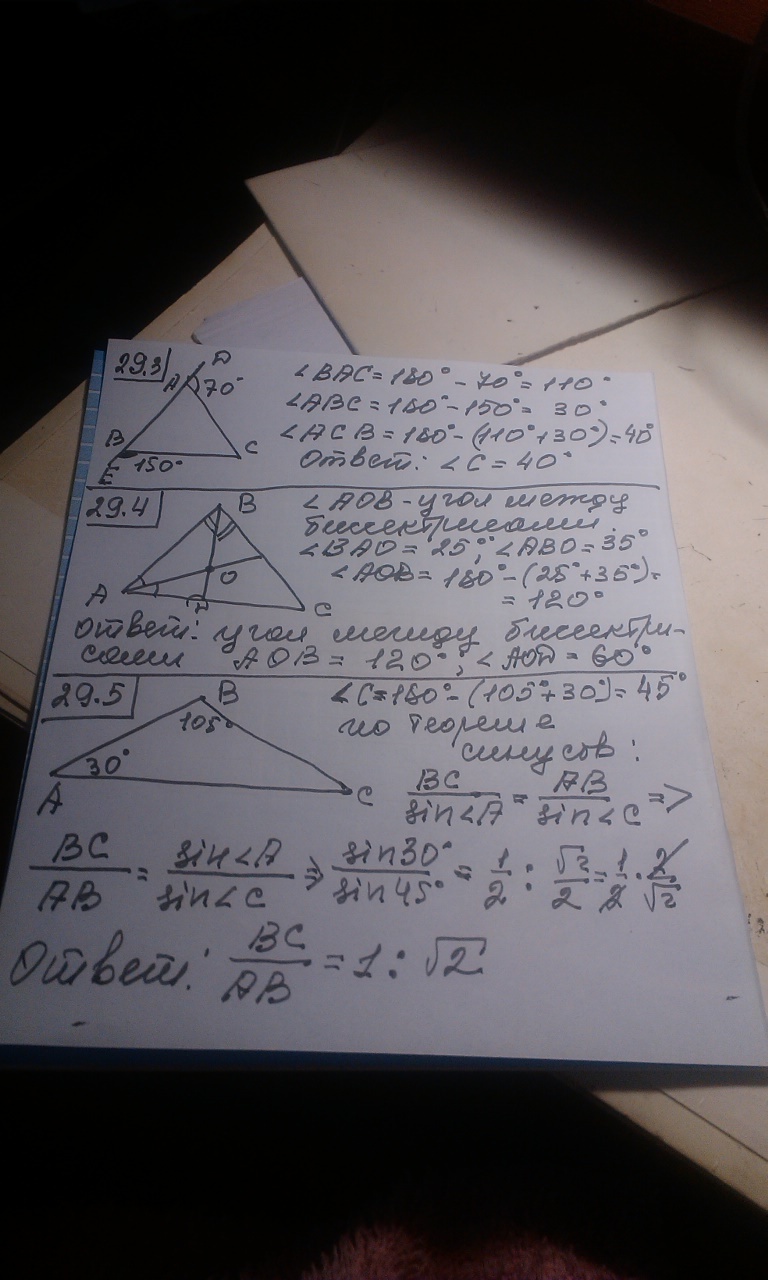 29.3
D
A 70°
B
C
E 150°
∠BAC = 180° - 70° = 110°
∠ABC = 180° - 150° = 30°
∠ACB = 180° - (110° + 30°) = 40°
Ответ: ∠C = 40°
29.4
B
A
O
D
C
∠AOB - угол между
биссектрисами.
∠BAO = 25°; ∠ABO = 35°
∠AOB = 180° - (25° + 35°) =
= 120°
Ответ: угол между биссектри-
сами AOB = 120°; ∠AOD = 60°
29.5
B
105°
30°
A
C
∠C = 180° - (105° + 30°) = 45°
по теореме
синусов:
BC/sin∠A = AB/sin∠C =>
BC/AB = sin∠A/sin∠C => sin30°/sin45° = 1/2 : √2/2 = 1/2 · 2/√2
Ответ: BC/AB = 1 : √2